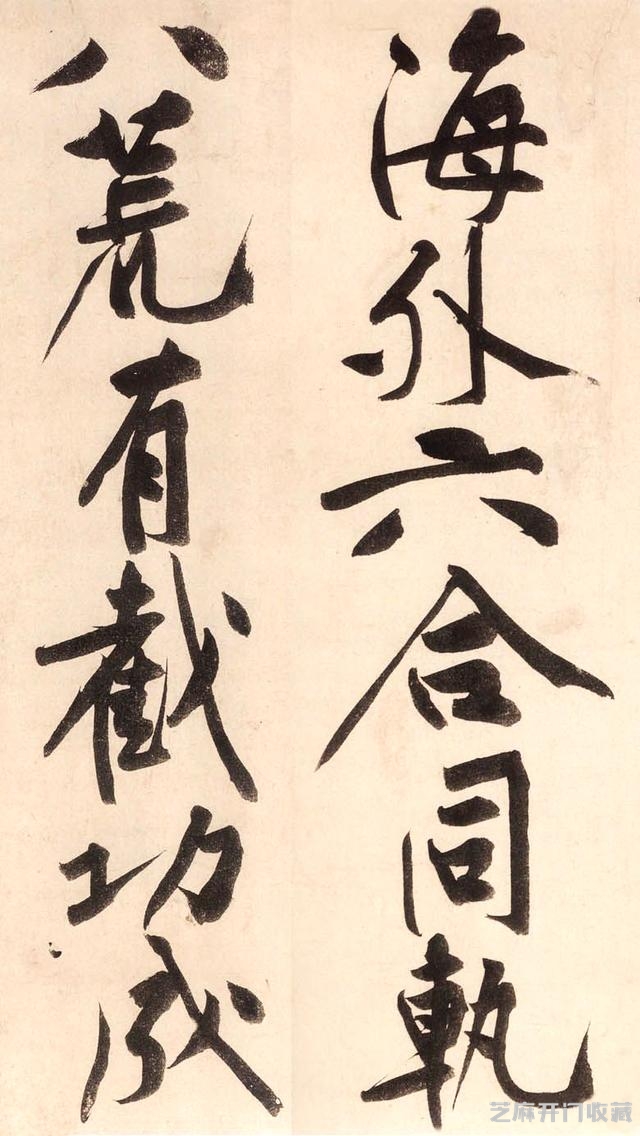 海外六合同軌
八荒有截功成
芝麻开门收藏